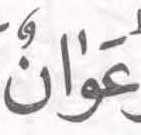 عَوَانٌ